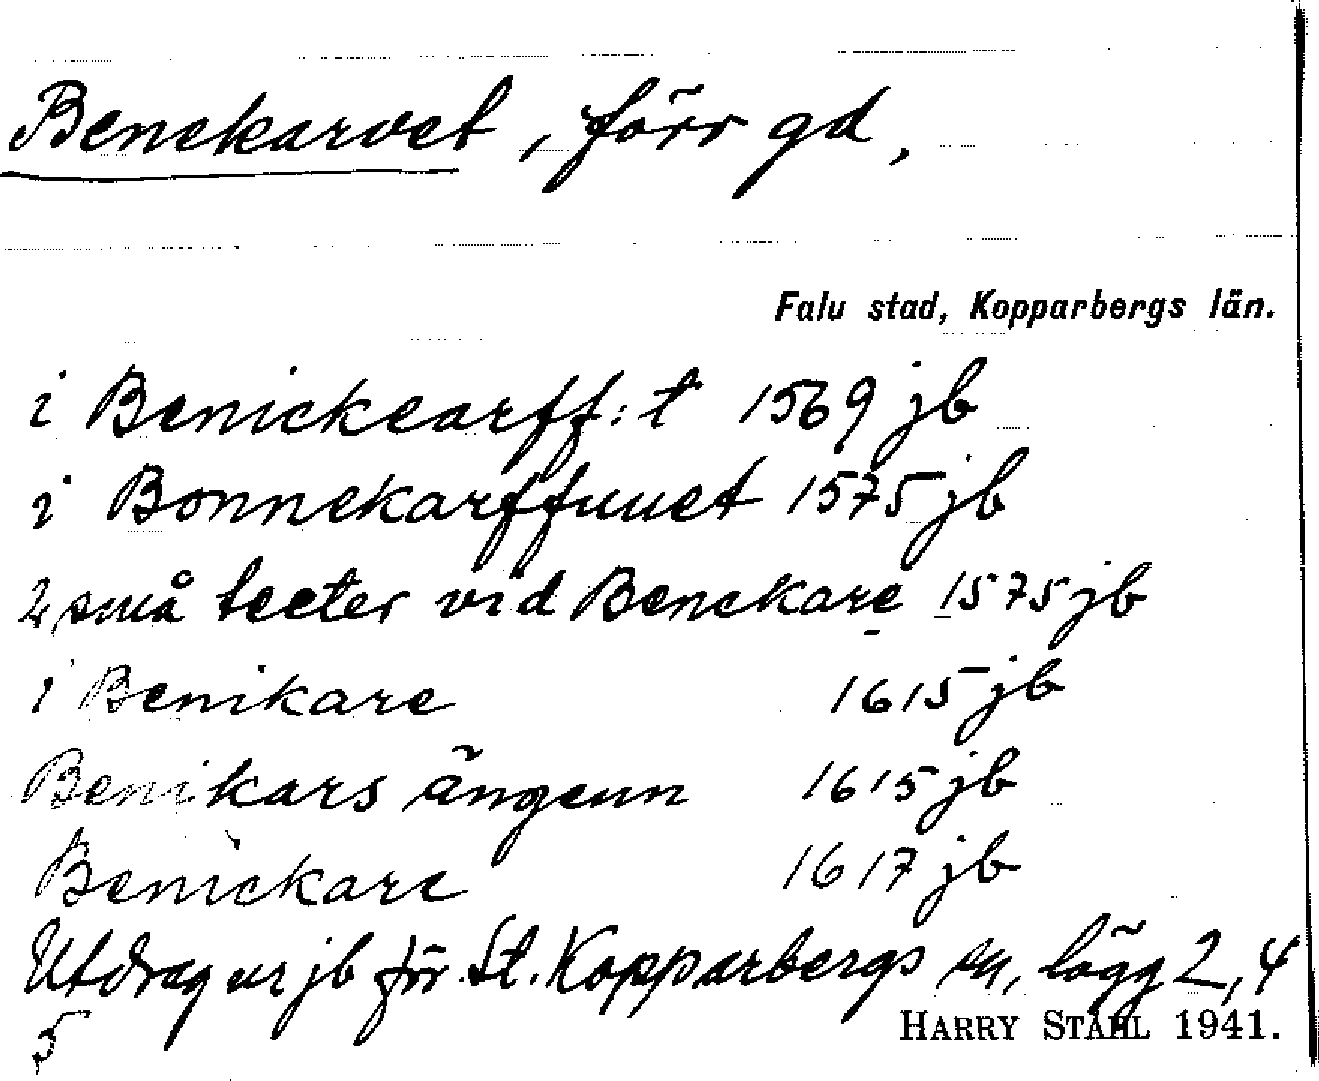 Benekarvet, förr gd,
Falu stad, Kopparbergs län.
i Benickearff:t 1569 jb
i Bonnekarffuuet 1575 jb
2 små teeter vid Benekare 1575 jb
i Benikare 1615 jb
Benikars ängenn 1615 jb
Benickare 1617 jb
Utdrag ur jb för St. Kopparbergs sn, lägg 2, 4
5
HARRY STÅHL 1941.